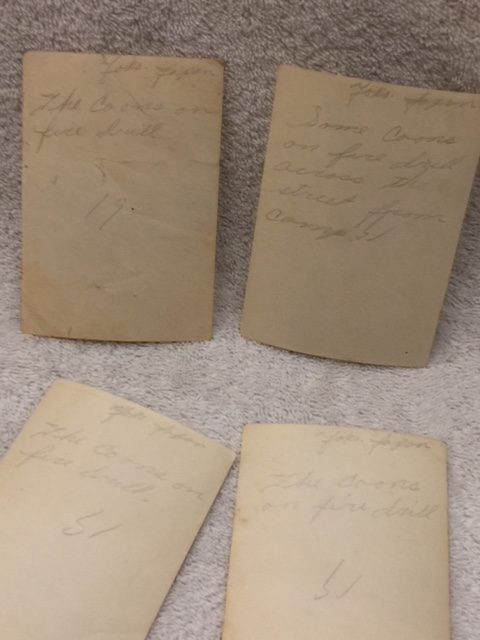 Yoko. Japan
The Coons on
fire drill
19
Yoko. Japan
Some Coons
on fire drill
across the
street from
camp.
Yoko. Japan
The Coons on
fire drill.
51
Yoko. Japan
The Coons
on fire drill
51